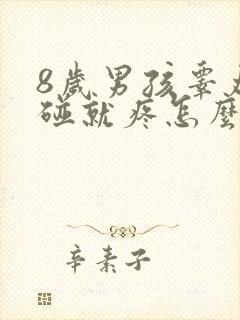 8歲男孩睾丸
碰就疼怎麼
辛素子